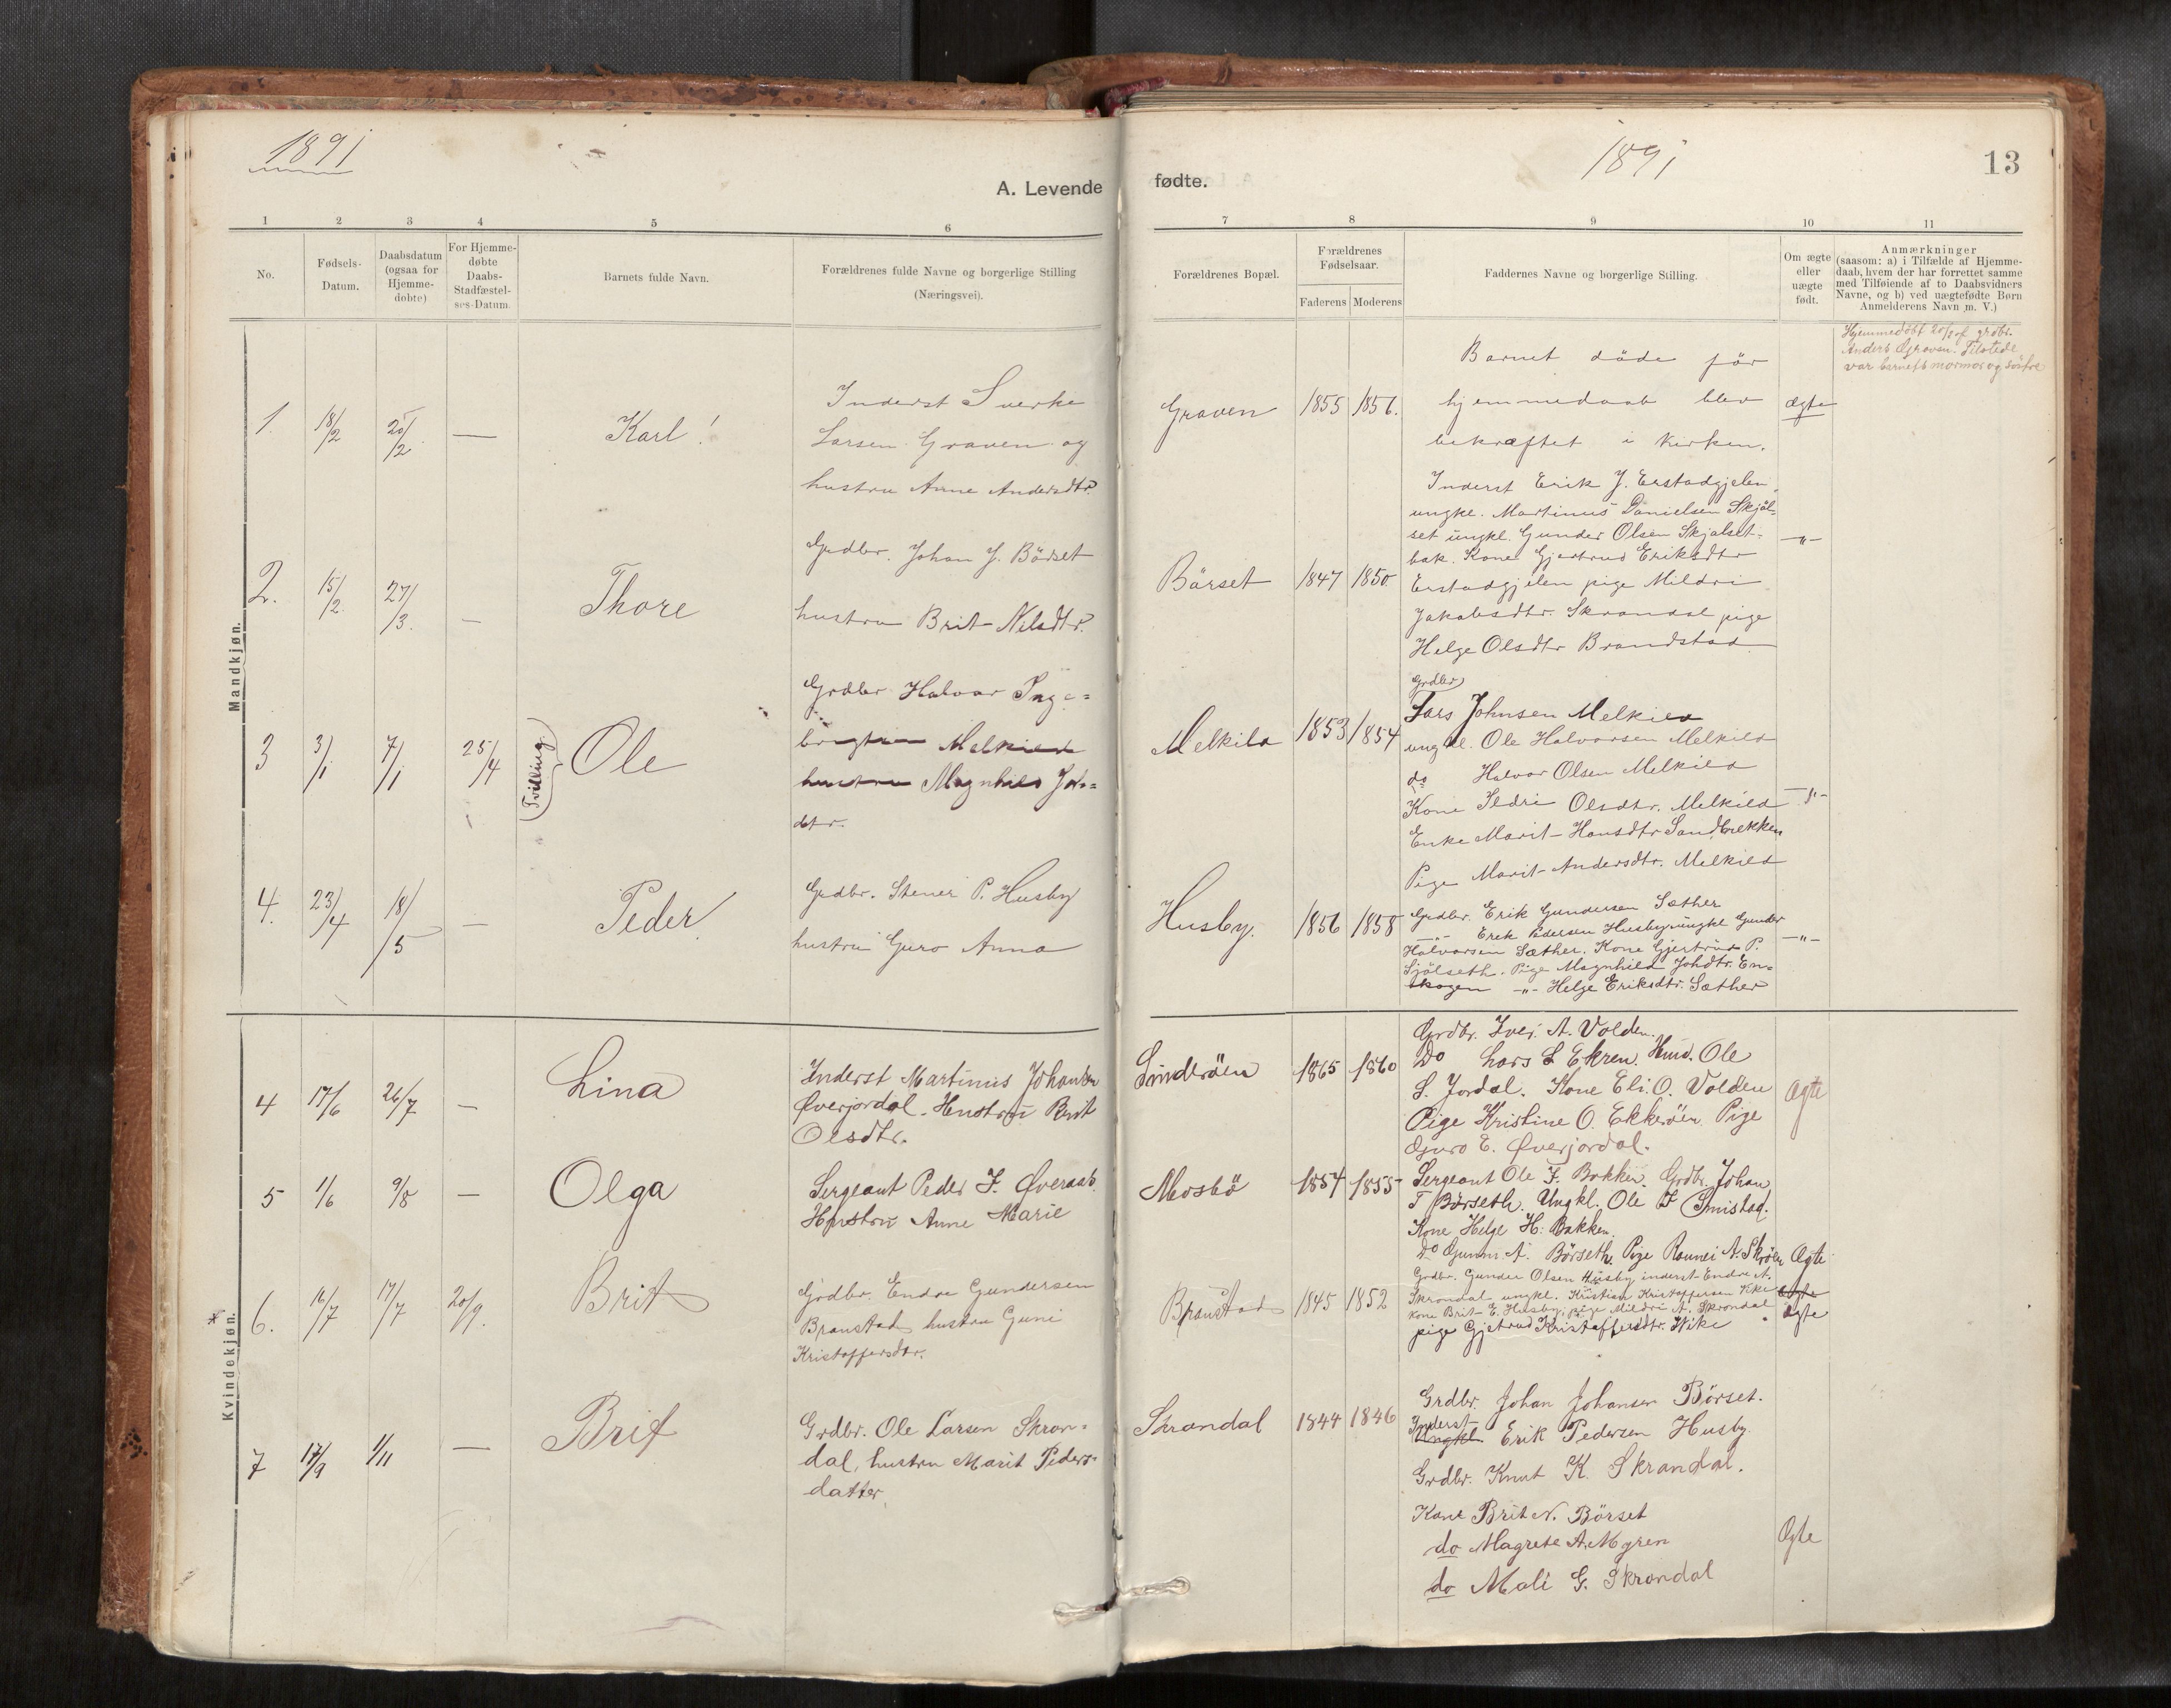 1891
A. Levende
1 2 3 4 5 6
No.
Fødsels-
Datum.
Daabsdatum
(ogsaa for
Hjemme-
døbte)
For Hjemme-
døbte
Daabs-
Stadfæstel-
ses-Datum.
Barnets fulde Navn.
Forældrenes fulde Navne og borgerlige Stilling
(Næringsvei).
Mandkjøn.
1. 18/2 20/2 — Karl!
Inderst Sverke
Larsen Graven og
hustru Anne Andersdtr.
2. 15/2 27/3. — Thore
Grdbr. Johan J. Börset
hustru Brit Nilsdtr.
3 3/1 7/1 25/4 (Tvilling) Ole
Grdbr Halvor Inge=
brigtsen Melkild
hustru Magnhild Joh=
dtr.
4. 23/4 18/5 — Peder
Grdbr. Stener P. Husby
hustru Guro Anna
Kvindekjøn.
4 17/6 26/7 — Lina
Inderst Martinus Johansen
Øverjordal. Hustru Brit
Olsdtr.
5 1/6 9/8 — Olga
Sergeant Peder I. Øveraas.
Hustru Anne Marie
6. 16/7 17/7 20/9. Brit
Grdbr. Endre Gundersen
Branstad hustru Guni
Kristoffersdtr.
7 17/9 1/11 — Brit
Grdbr. Ole Larsen Skron=
dal, hustru Marit Peders=
datter
1891
13
fødte.
7 8 9 10 11
Forældrenes Bopæl.
Forældrenes
Fødselsaar.
Faderens Moderens
Faddernes Navne og borgerlige Stilling.
Om ægte
eller
uægte
født.
Anmærkninger
(saasom: a) i Tilfælde af Hjemme-
daab, hvem der har forrettet samme
med Tilføiende af to Daabsvidners
Navne, og b) ved uægtefødte Børn
Anmelderens Navn m. V.)
Hjemmedöbt 20/2 af grdbr.
Anders Graven. Tilstede
var barnets mormor og
Graven 1855 1856.
Barnet döde för
hjemmedaab blev
bekræftet i kirken.
ægte
Börset 1847 1850
Inderst Erik J. Erstadgjelen
ungkl. Martinus Danielsen Skjöl=
set ungkl. Gunder Olsen Skjölset=
bak. Kone Gjertrud Eriksdtr
Erstadgjelen pige Mildri
Jakobsdtr. Skrondal pige
Helge Olsdtr Brandstad
—"—
Melkild 1853 1854
Grdbr
Lars Johnsen Melkild
ungkl. Ole Halvorsen Melkild
do Halvor Olsen Melkild
Kone Sedri Olsdtr. Melkild
Enke Marit Hansdtr Sandbrekken
Pige Marit Andersdtr. Melkild
—"—
Husby. 1856 1858
Grdbr. Erik Gundersen Sæther
—"— Erik Pedersen Husby ungkl Gunder
Halvorsen Sæther. Kone Gjertrud P.
Sjölseth. Pige Magnhild Johdtr. En=
skogen —"— Helge Eriksdtr. Sæther
—"—
Linderöen 1865 1860
Grdbr. Iver A. Volden.
Do Lars L Ekren. Husd. Ole
S. Jordal. Kone Eli O. Volden
Pige Kristine O. Ekkeröen. Pige
Guro E. Øverjordal.
Ægte
Mosbö 1854 1855
Sergeant Ole F. Bakken. Grdbr. Johan
T Börseth. Ungkl. Ole F Smistad.
Kone Helge H. Bakken.
Do Gunni A. Börseth. Pige Rannei A. Skröen
Ægte
Branstad 1845 1852
Grdbr. Gunder Olsen Husby inderst Endre A.
Skrondal ungkl. Kristian Kristoffersen Vike
kone Brit E. Husby, pige Mildri A. Skrondal
pige Gjetrud Kristoffersdtr. Wike
ægte
Skrondal 1844 1846
Grdbr. Johan Johansen Börset.
Inderst
Ungkl. Erik Pedersen Husby.
Grdbr. Knut K. Skrondal.
Kone Brit N. Börset
do Magrete A. Myren
do Mali G. Skrondal
Ægte